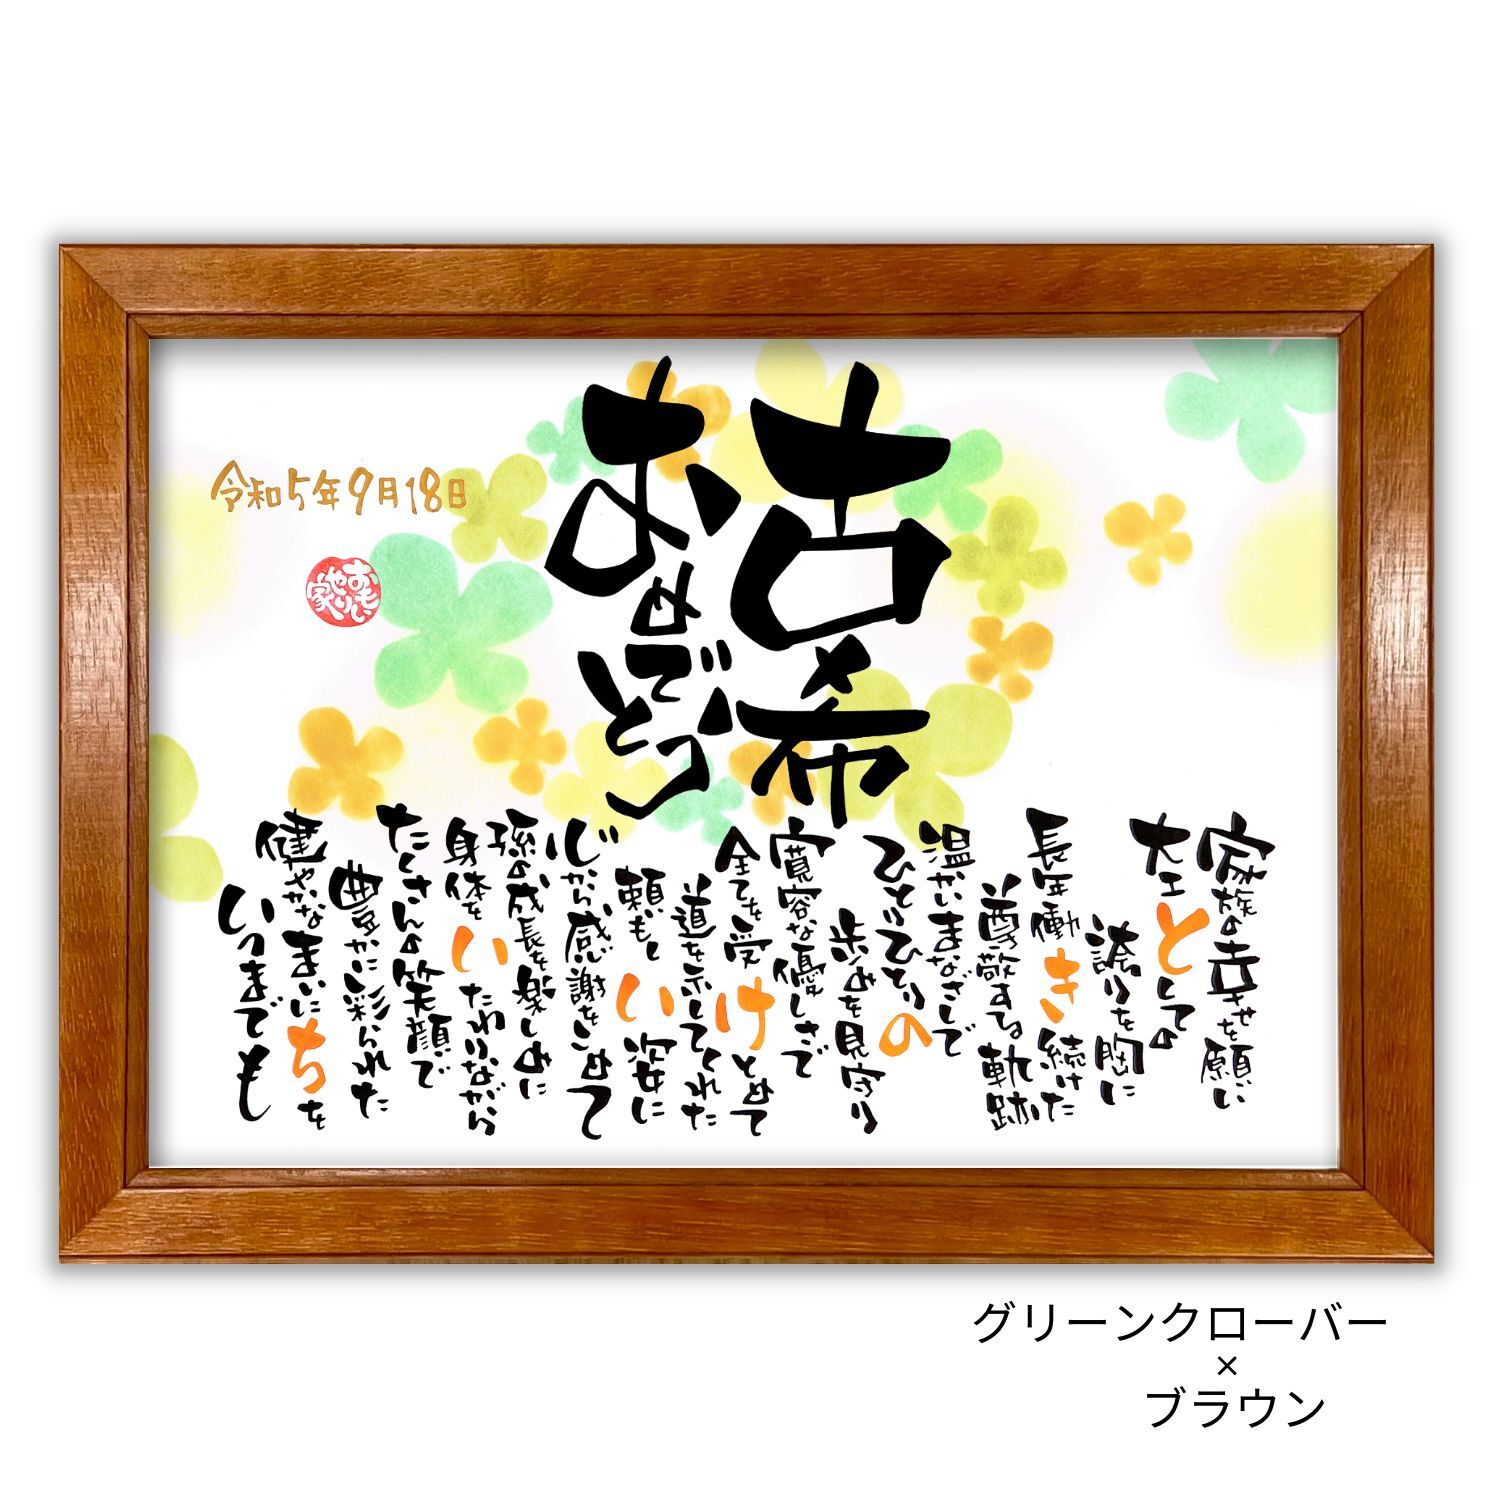 古希
おめでとう
令和5年9月18日
おもいやり家
家族の幸せを願い
大工としての
誇りを胸に
長年働き続けた
尊敬する軌跡
温かいまなざしで
ひとりひとりの
歩みを見守り
寛容な優しさで
全てを受けとめて
道を示してくれた
頼もしい姿に
心から感謝をこめて
孫の成長を楽しみに
身体をいたわりながら
たくさんの笑顔で
豊かに彩られた
健やかなまいにちを
いつまでも
グリーンクローバー
×
ブラウン